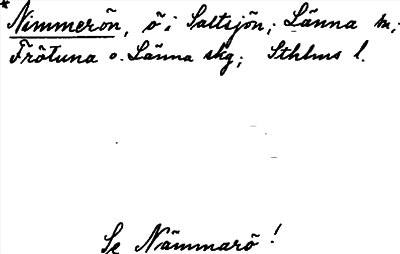 *Nimmerön, ö i Saltsjön; Länna sn;
Frötuna o. Länna skg; Sthlms l.
Se Nämmarö!